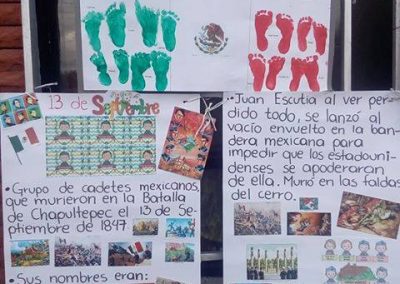 13 de Septiembre
• Grupo de cadetes mexicanos,
que murieron en la Batalla
de Chapultepec el 13 de Se-
ptiembre de 1847
• Sus nombres eran:
• Juan Escutia al ver per-
dido todo, se lanzó al
vacío envuelto en la ban-
dera mexicana para
impedir que los estadouni-
denses se apoderaran
de ella. Murió en las faldas
del cerro.